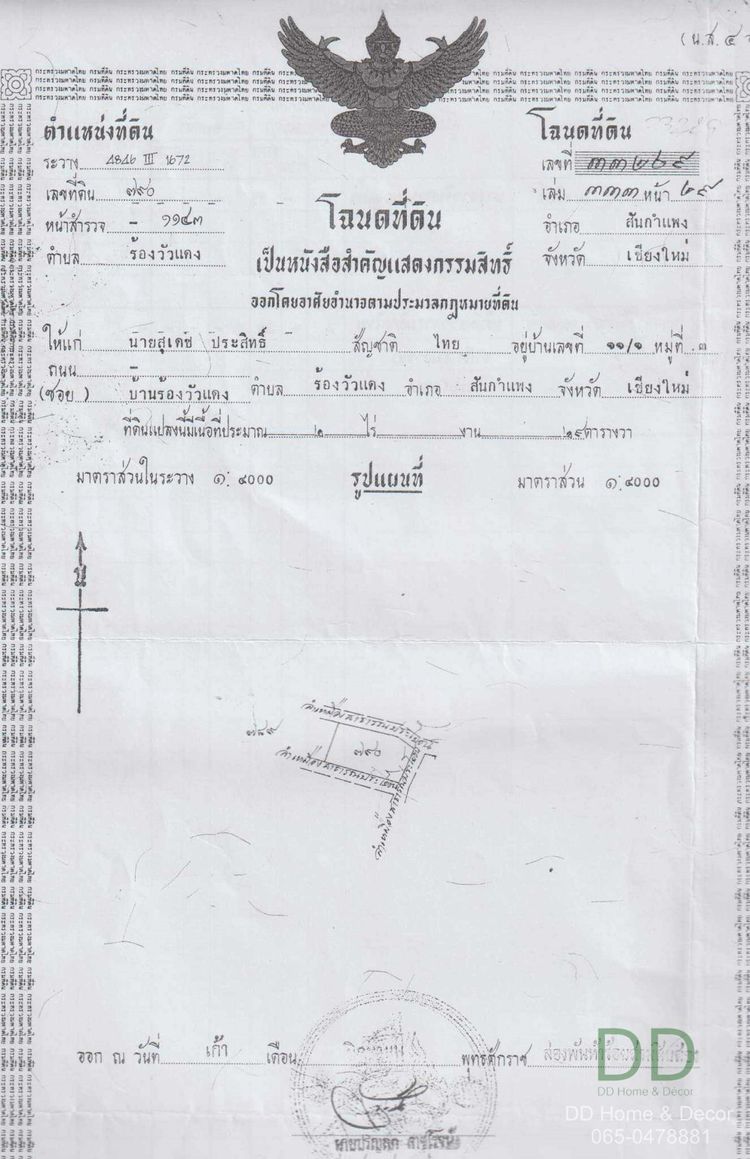 (น.ส. ๔
ตำแหน่งที่ดิน
ระวาง 4846 III 1672
เลขที่ดิน ๗๙๐
หน้าสำรวจ - ๑๑๔๓
ตำบล ร้องวัวแดง
โฉนดที่ดิน
เลขที่ ๓๓๒๖๙
เล่ม ๓๓๓ หน้า ๒๙
อำเภอ สันกำแพง
จังหวัด เชียงใหม่
โฉนดที่ดิน
เป็นหนังสือสำคัญแสดงกรรมสิทธิ์
ออกโดยอาศัยอำนาจตามประมวลกฎหมายที่ดิน
ให้แก่ นายสุเดช ประสิทธิ์ สัญชาติ ไทย อยู่บ้านเลขที่ ๑๑/๑ หมู่ที่ ๓
ถนน -
(ซอย) บ้านร้องวัวแดง ตำบล ร้องวัวแดง อำเภอ สันกำแพง จังหวัด เชียงใหม่
ที่ดินแปลงนี้มีเนื้อที่ประมาณ ๒ ไร่ - งาน ๒๙ ตารางวา
มาตราส่วนในระวาง ๑:๔๐๐๐ รูปแผนที่ มาตราส่วน ๑:๔๐๐๐
น
ลำเหมืองสาธารณประโยชน์
๗๘๙
๗๙๐
ลำเหมืองสาธารณประโยชน์
ลำเหมืองสาธารณประโยชน์
ออก ณ วันที่ เก้า เดือน พุทธศักราช
DD
DD Home & Décor
DD Home & Decor
065-0478881